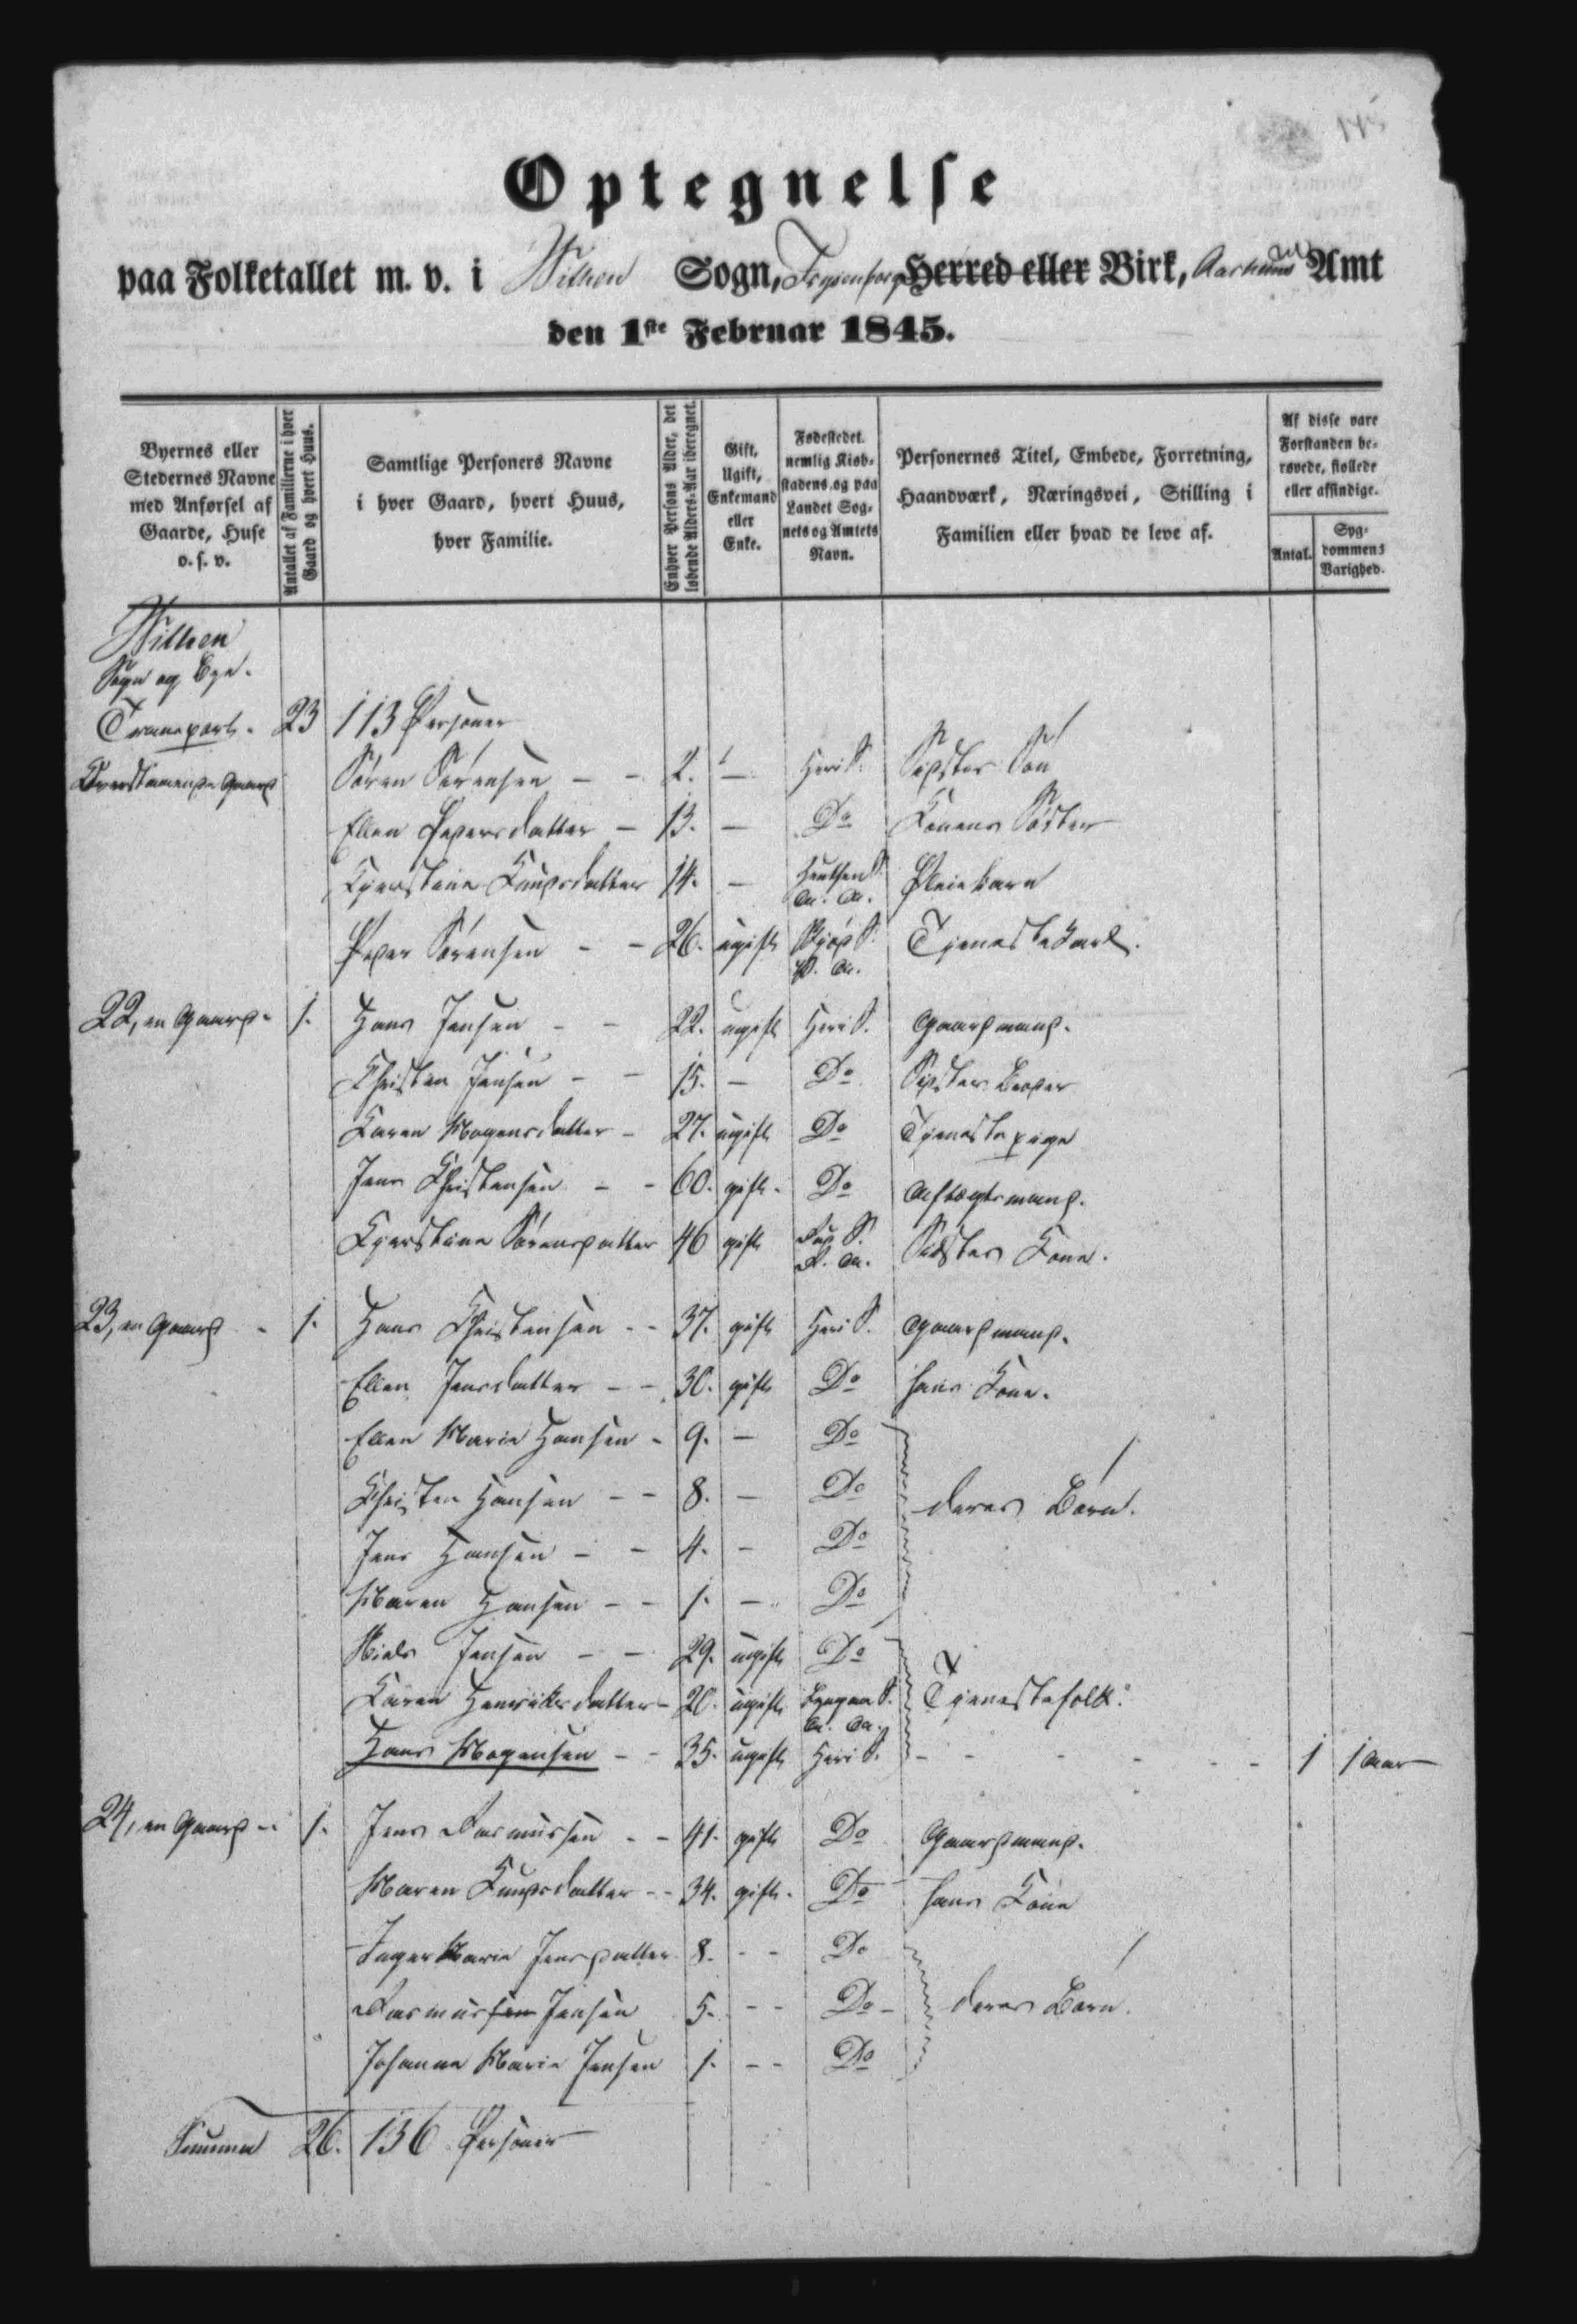 Optegnelse
paa Folketallet m. v. i Vitten Sogn, Frysenborg Herred eller Birk, Aarhuus Amt
den 1ste Februar 1845.
Byernes eller Stedernes Navne med Anførsel af Gaarde, Huse o. s. v.
Antallet af Familierne i hver Gaard og hvert Huus.
Samtlige Personers Navne i hver Gaard, hvert Huus, hver Familie.
Enhver Persons Alder, det løbende Alders-Aar iberegnet.
Gift, Ugift, Enkemand eller Enke.
Fødestedet. nemlig Kiøbstadens, og paa Landet Sognets og Amtets Navn.
Personernes Titel, Embede, Forretning, Haandværk, Næringsvei, Stilling i Familien eller hvad de leve af.
Af disse vare Forstanden berøvede, stollede eller afsindige.
Antal.
Sygdommens Varighed.
Vitten
Sogn og Bye.
Transport. 23 113 Personer
Søren Sørensen - - 2. - Heri S. Søn
Ellen Pedersdatter - 13. - Do Konens Søster
Kjerstine Knudsdatter 14. - S. A. A. Pleiebarn
Peder Sørensen - - 26. ugift S. A. Tjenestekarl.
22, en Gaard - 1. Hans Jensen - - 22. ugift Heri S. Gaardmand.
Christen Jensen - - 15. - Do
Karen Mogensdatter - 27. ugift Do Tjenestepige
Jens Christensen - - 60. gift - Do Aftægtsmand.
Kjerstine Sørensdatter 46 gift S. R. A. Kone.
23, en Gaard - 1. Hans Christensen - - 37. gift Heri S. Gaardmand.
Ellen Jensdatter - - 30. gift Do hans Kone.
Ellen Marie Hansen - 9. - Do
Christen Hansen - - 8. - Do deres Børn.
Jens Hansen - - 4. - Do
Maren Hansen - - 1. - Do
Niels Jensen - - 29. ugift Do
Karen Henriksdatter - 20. ugift S. A. Tjenestefolk.
Hans Mogensen - - 35. ugift Heri S. - - - - - - 1 1 Aar
24, en Gaard - 1. Jens Rasmussen - - 41. gift Do Gaardmand.
Maren Knudsdatter - - 34. gift - Do hans Kone
Inger Marie Jensdatter 8. - - Do
Rasmussen Jensen 5. - - Do - deres Børn.
Johanne Marie Jensen 1. - - Do
Summa 26. 136 Personer